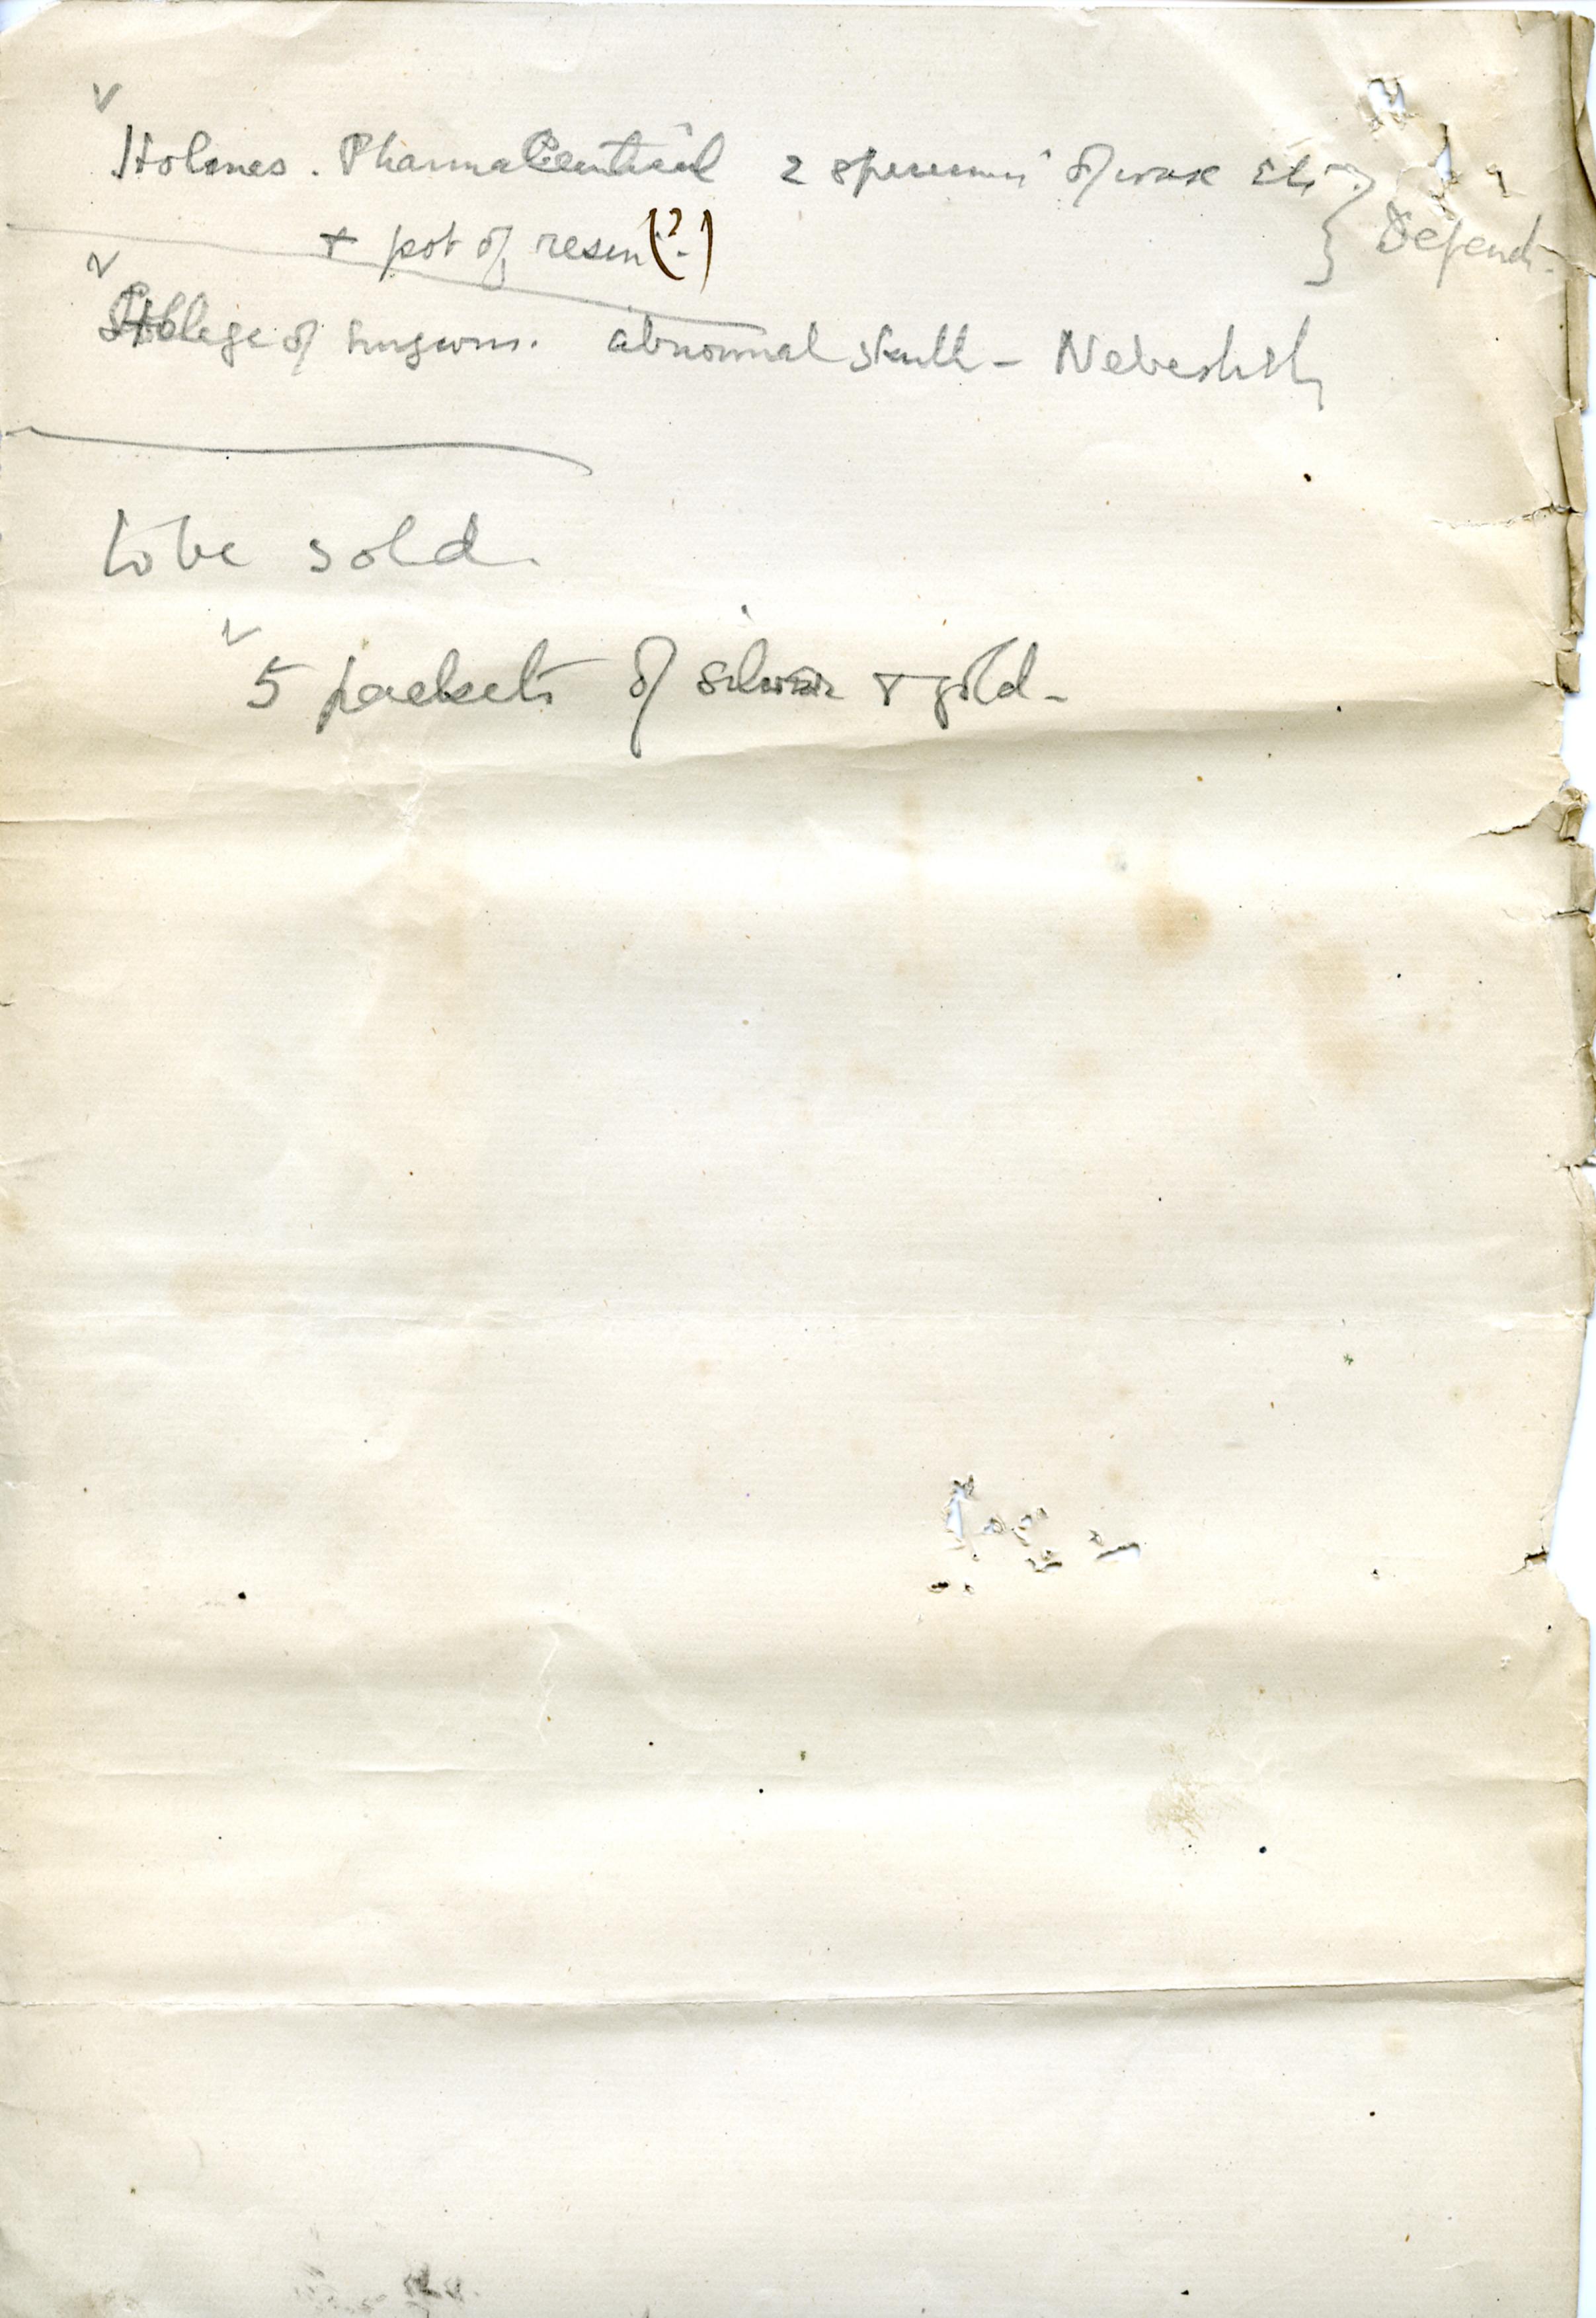 ✓ Holmes. Pharmaceutical 2 specimens of wax etc } Defenneh
+ pot of resin (?)
✓ College of Surgeons. abnormal skull - Nebesheh
to be sold.
✓ 5 packets of silver & gold -